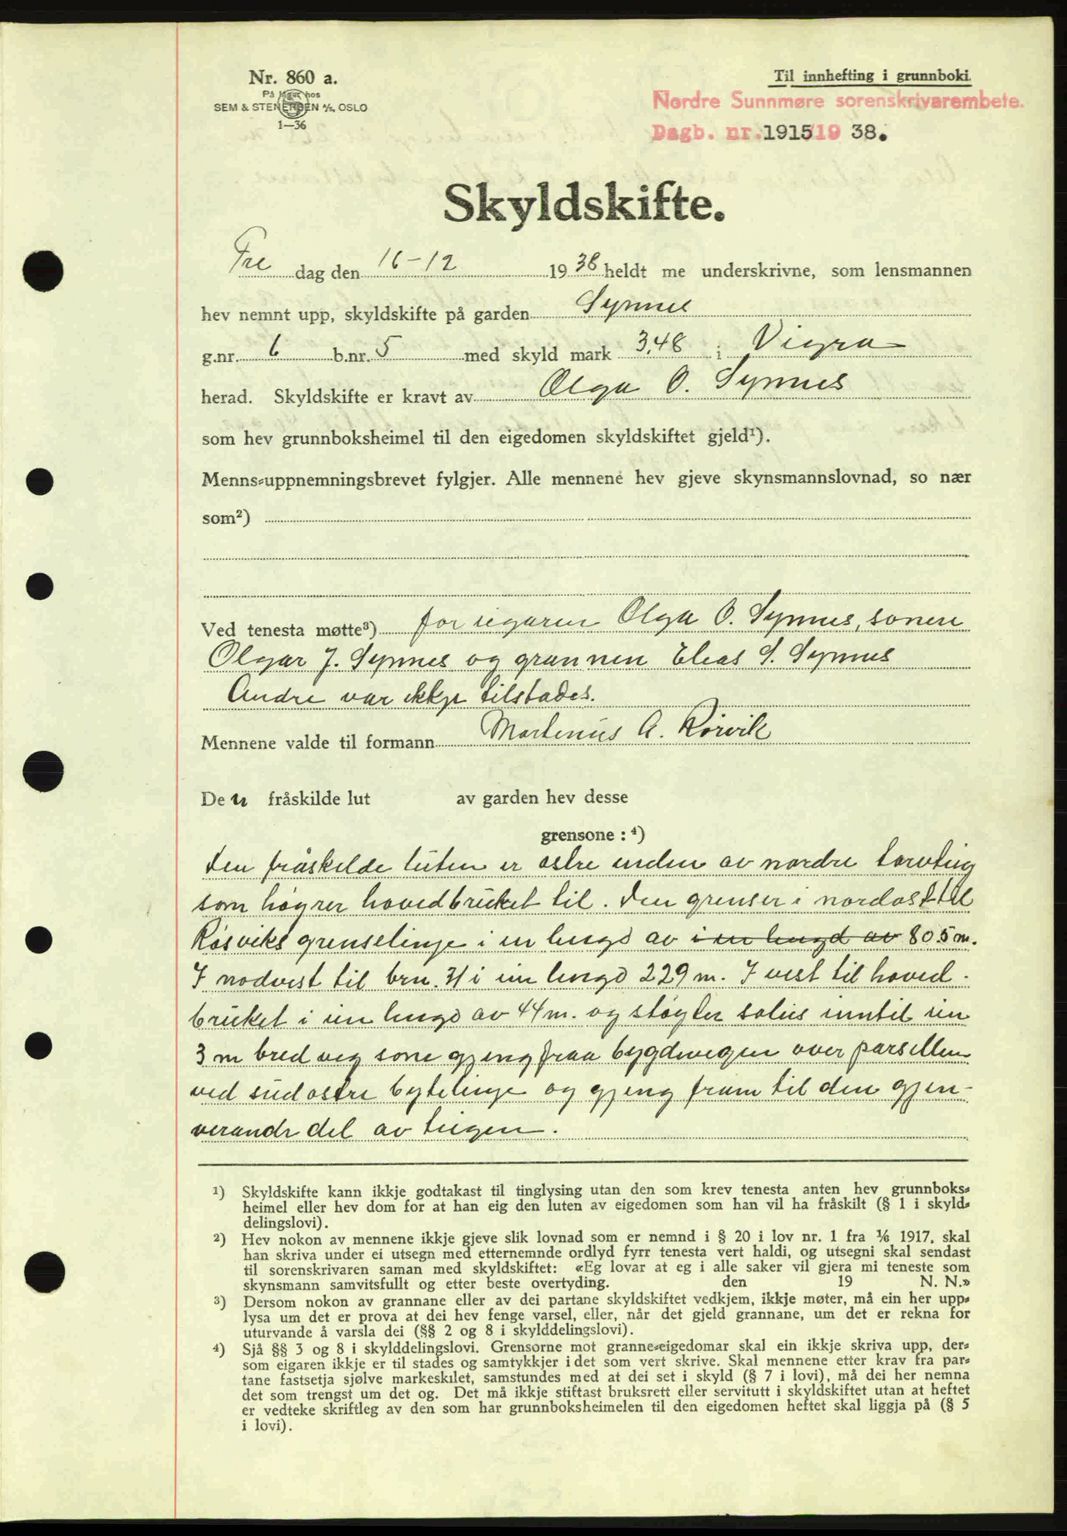 Nr. 860 a.
På lager hos
SEM & STENERSEN A/S, OSLO
1—36
Til innhefting i grunnboki.
Nordre Sunnmøre sorenskrivarembete.
Dagb. nr. 1915/19 38.
Skyldskifte.
Fre dag den 16-12 19 38 heldt me underskrivne, som lensmannen
hev nemnt upp, skyldskifte på garden Synnes
g.nr. 6 b.nr. 5 med skyld mark 3,48 i Vigra
herad. Skyldskifte er kravt av Olga O. Synnes
som hev grunnboksheimel til den eigedomen skyldskiftet gjeld¹).
Menns-uppnemningsbrevet fylgjer. Alle mennene hev gjeve skynsmannslovnad, so nær
som²)
Ved tenesta møtte³) for eigaren Olga O. Synnes, sonen
Olgar J. Synnes og grannen Elias S. Synnes
Andre var ikkje tilstades.
Mennene valde til formann Martinus A. Rørvik
De n fråskilde lut av garden hev desse
grensone : ⁴)
Den fråskilde luten er østre enden av nordre torvteig
som høyrer hovedbruket til. Den grenser i nordøst til
Røsviks grenselinje i en lengd av i en lengd av 80.5 m.
I nodvest til brn. 31 i ein lengd 229 m. I vest til hoved-
bruket i ein lengd av 44 m. og støyter solies inntil ein
3 m bred veg som gjeng fraa bygdevegen over parsellen
ved sudøstre bytelinje og gjeng fram til den gjen-
verande del av teigen.
¹) Skyldskifte kann ikkje godtakast til tinglysing utan den som krev tenesta anten hev grunnboks-
heimel eller hev dom for at han eig den luten av eigedomen som han vil ha fråskilt (§ 1 i skyld-
delingslovi).
²) Hev nokon av mennene ikkje gjeve slik lovnad som er nemnd i § 20 i lov nr. 1 fra ⅙ 1917, skal
han skriva under ei utsegn med etternemnde ordlyd fyrr tenesta vert haldi, og utsegni skal sendast
til sorenskrivaren saman med skyldskiftet: «Eg lovar at eg i alle saker vil gjera mi teneste som
skynsmann samvitsfullt og etter beste overtyding. den 19 N. N.»
³) Dersom nokon av grannane eller av dei partane skyldskiftet vedkjem, ikkje møter, må ein her upp-
lysa um det er prova at dei hev fenge varsel, eller, når det gjeld grannane, um det er rekna for
uturvande å varsla dei (§§ 2 og 8 i skylddelingslovi).
⁴) Sjå §§ 3 og 8 i skylddelingslovi. Grensorne mot granne-eigedomar skal ein ikkje skriva upp, der-
som eigaren ikkje er til stades og samtykkjer i det som vert skrive. Skal mennene etter krav fra par-
tane fastsetja sjølve markeskilet, samstundes med at dei set i skyld (§ 7 i lovi), må dei her nemna
det som trengst um det og. Det må ikkje stiftast bruksrett eller servitutt i skyldskiftet utan at heftet
er vedteke skriftleg av den som har grunnboksheimelen til den eigedomen heftet skal liggja på (§ 5
i lovi).